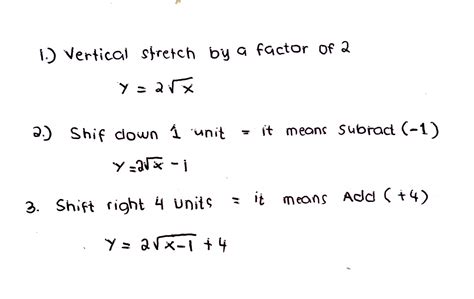 1.) Vertical stretch by a factor of 2
y = 2√x
2.) Shif down 1 unit = it means subract (-1)
y = 2√x - 1
3. Shift right 4 units = it means Add (+4)
y = 2√x-1 + 4